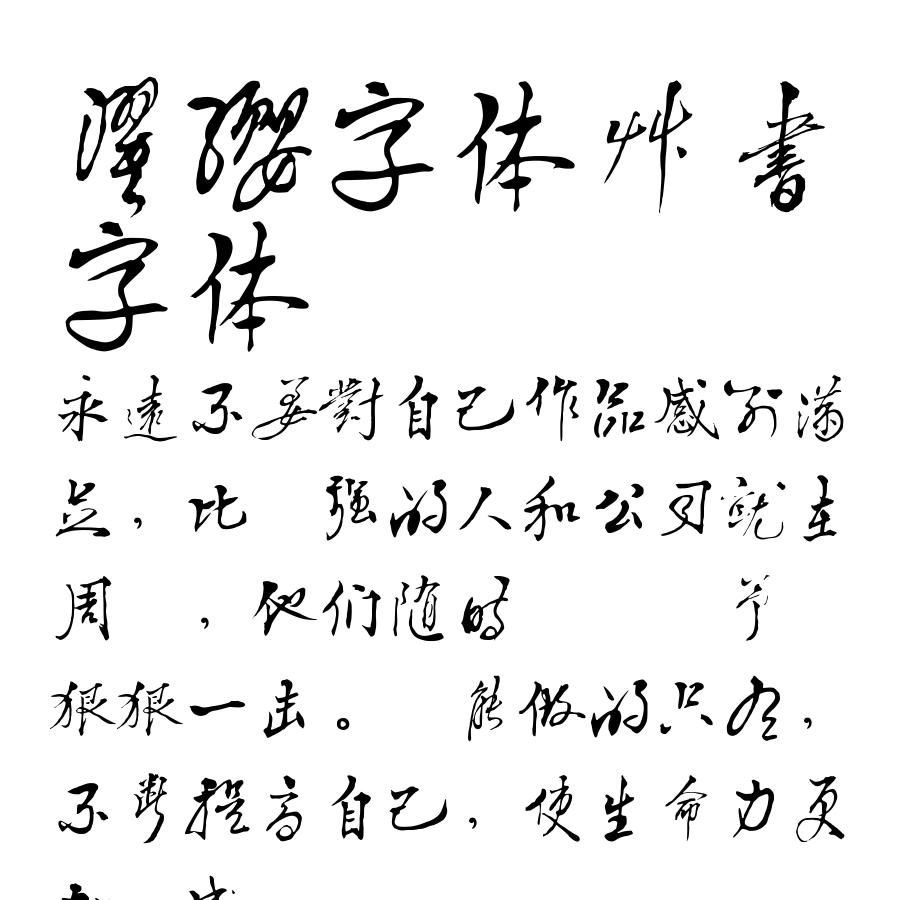 濯纓字体艸書
字体
永遠不要對自己作品感到滿
点，比 强的人和公司就在
周 ，他们随時 节
狠狠一击。 能做的只有，
不斷提高自己，使生命力更